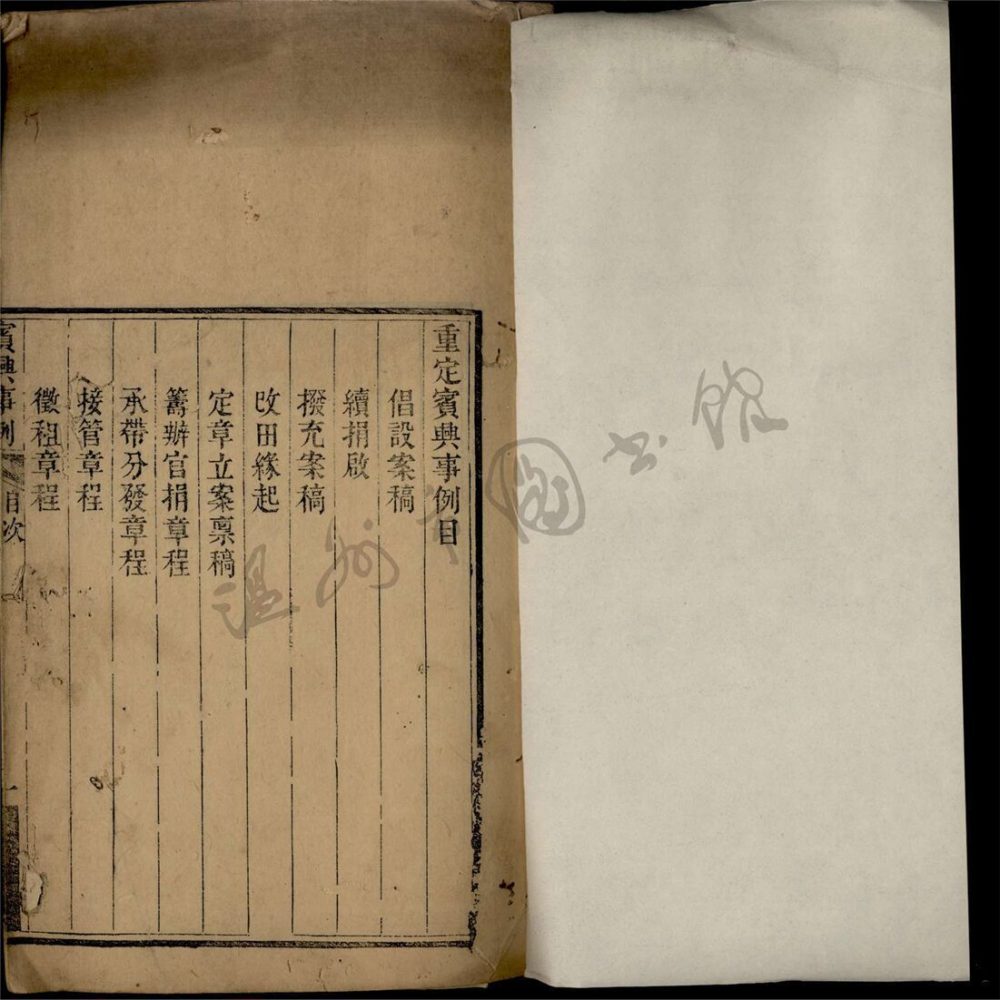 重定賓興事例目
倡設案稿
續捐啟
撥充案稿
改田緣起
定章立案稟稿
籌辦官捐章程
承帶分發章程
接管章程
徵租章程
賓興事例 目次 一
溫州市圖书館